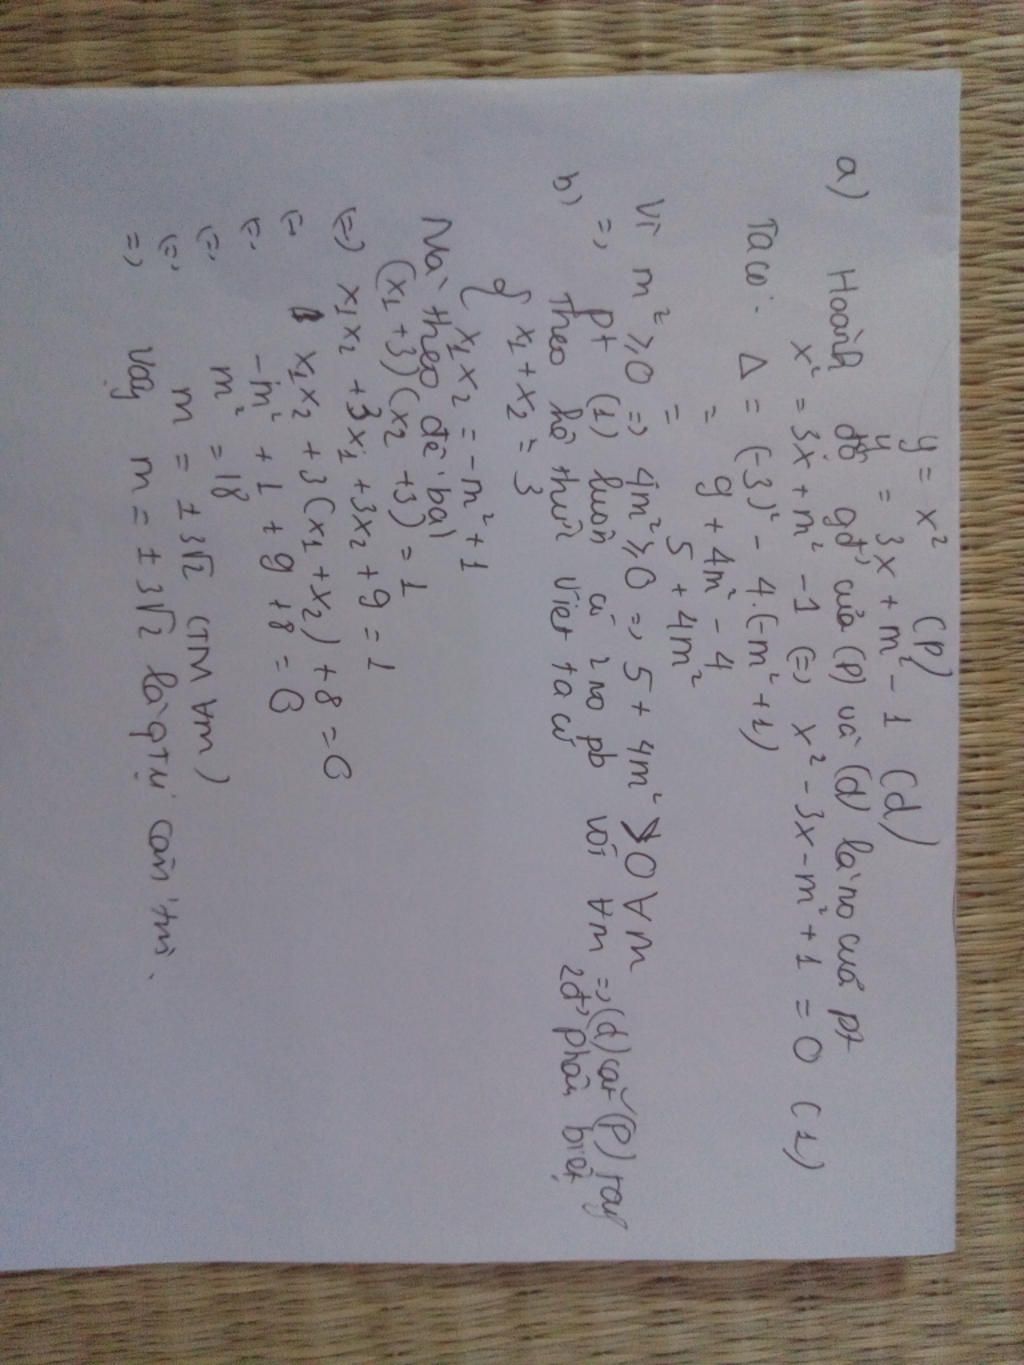 y = x² (P)
y = 3x + m² - 1 (d)
a) Hoành độ gđ của (P) và (d) là no cuả pt
x² = 3x + m² - 1 (=) x² - 3x - m² + 1 = 0 (1)
Ta có: Δ = (-3)² - 4.(-m² + 1)
= 9 + 4m² - 4
= 5 + 4m²
Vì m² ≥ 0 => 4m² ≥ 0 => 5 + 4m² > 0 ∀m
=> pt (1) luôn có 2 no pb với ∀m => (d) cắt (P) tại
2đ' phân biệt
b) Theo hệ thức Viet ta có
{ x₁ + x₂ = 3
x₁x₂ = -m² + 1
Mà theo đề bài
(x₁ + 3)(x₂ + 3) = 1
(=) x₁x₂ + 3x₁ + 3x₂ + 9 = 1
(=) x₁x₂ + 3(x₁ + x₂) + 8 = 0
(=) -m² + 1 + 9 + 8 = 0
(=) m² = 18
(=) m = ± 3√2 (TM ∀m)
=> Vậy m = ± 3√2 là gtrị cần tìm.